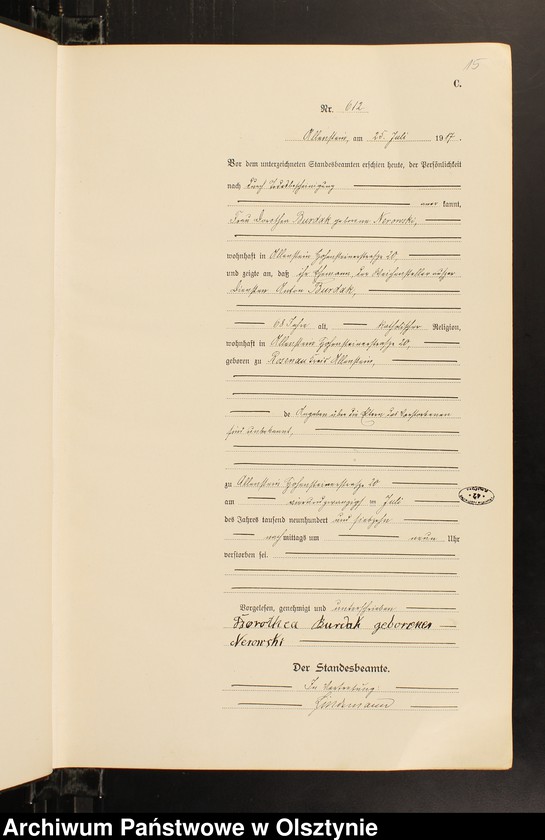 15
C.
Nr. 612
Allenstein, am 25. Juli 1917.
Vor dem unterzeichneten Standesbeamten erschien heute, der Persönlichkeit
nach durch Todesbescheinigung
anerkannt,
Frau Dorothea Burdak geborene Nerowski,
wohnhaft in Allenstein Hohensteinerstraße 20,
und zeigte an, daß ihr Ehemann, der Weichensteller außer
Diensten Anton Burdak,
68 Jahre alt, katholischer Religion,
wohnhaft in Allenstein Hohensteinerstraße 20,
geboren zu Rosenau Kreis Allenstein,
de Angaben über die Eltern des Verstorbenen
sind unbekannt,
zu Allenstein Hohensteinerstraße 20
am vierundzwanzigsten Juli
des Jahres tausend neunhundert und siebzehn
nachmittags um neun Uhr
verstorben sei.
Vorgelesen, genehmigt und unterschrieben
Dorothea Burdak geborener
Nerowski
Der Standesbeamte.
In Vertretung
Archiwum Państwowe w Olsztynie